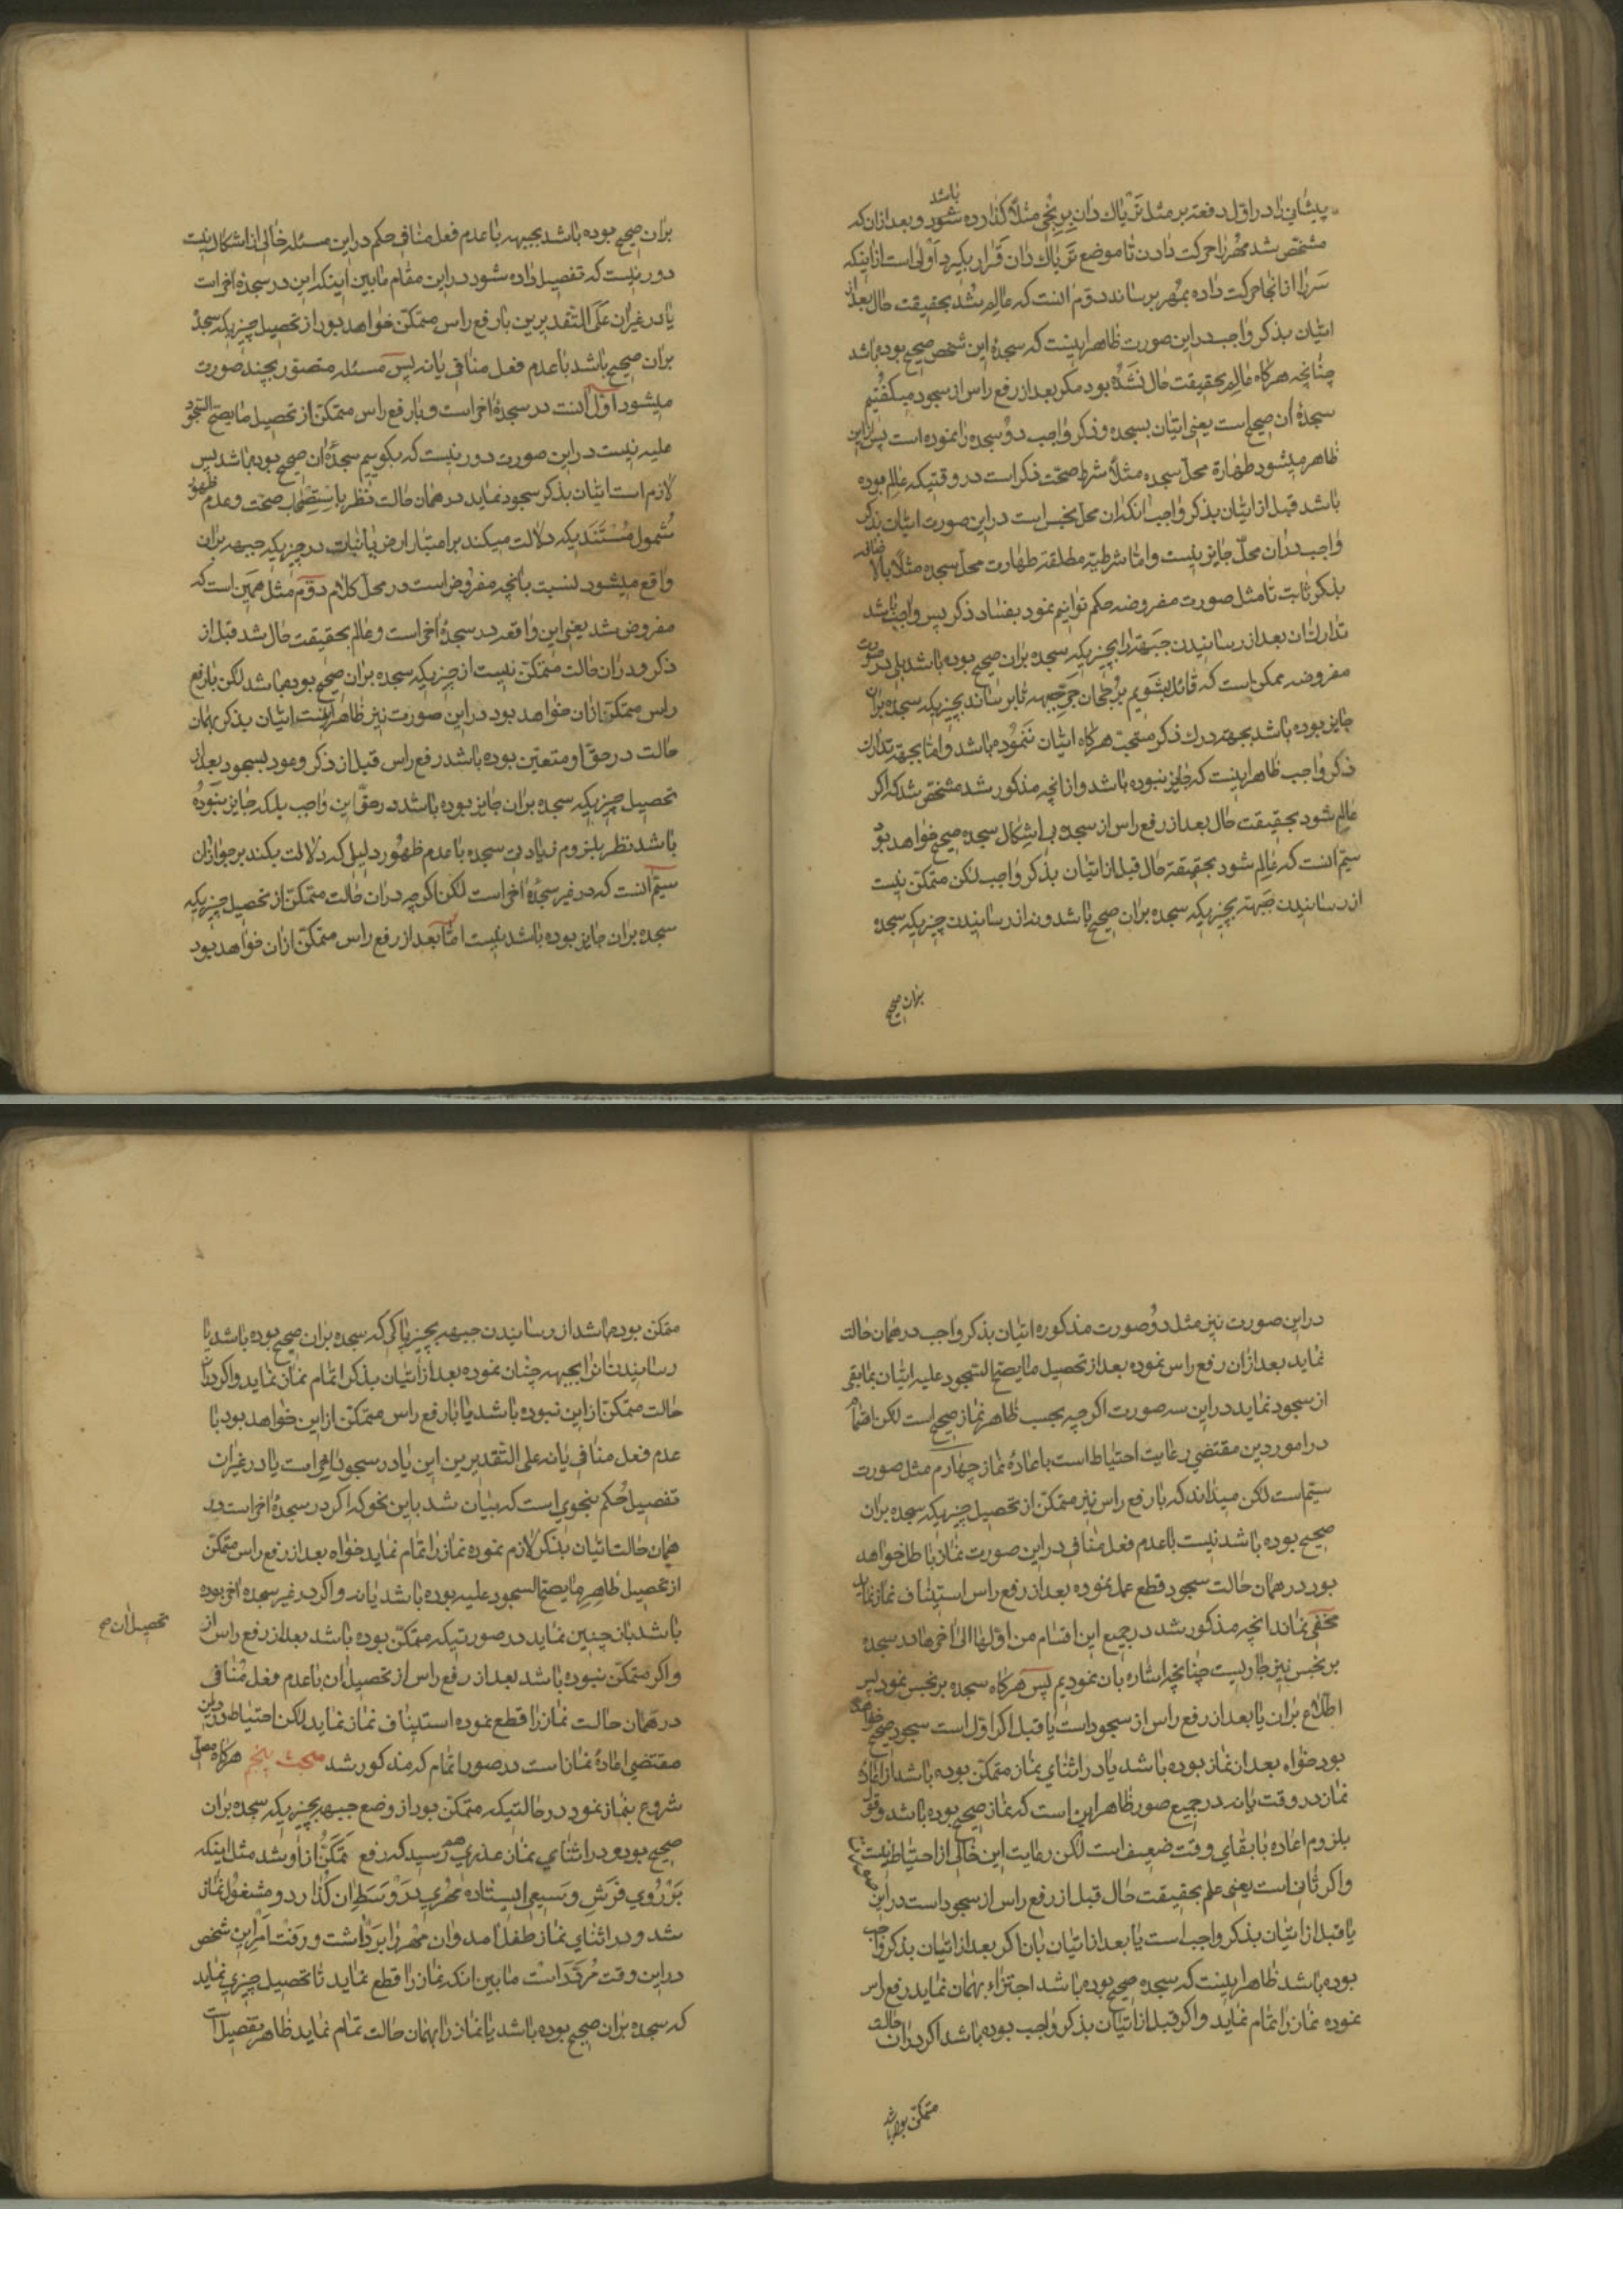 باشد
پیشانی را در اول دفعه بر مثل تریاك دان برنجی مثلا گذارده شود و بعد ازان که
مشخص شد مهر را حرکت دادن تا موضع تریاك دان قرار بگیرد اولی است از اینکه
سر را از انجا حرکت داده بمهر برساند دوم انست که عالم شد بحقیقت حال بعد از
اتیان بذکر واجب در این صورت ظاهر اینست که سجدۀ این شخص صحیح بوده باشد
چنانچه هر گاه عالم بحقیقت حال نشده بود مکر بعد از رفع راس از سجود میکفتیم
سجدۀ ان صحیح است یعنی اتیان بسجده و ذکر واجب دو سجده را نموده است پس از این
ظاهر میشود طهارة محل سجده مثلا شرط صحت ذکر است در وقتیکه عالم بوده
باشد قبل از اتیان بذکر واجب انکه ان محل نجس است در این صورت اتیان بذکر
واجب در ان محل جایز نیست و اما شرطیة مطلقة طهارت محل سجده مثلا بالاضافه
بذکر ثابت تا مثل صورت مفروضه حکم توانیم نمود بفساد ذکر پس واجب باشد
تدارك ان بعد از رسانیدن جبهه را بچیزیکه سجده بران صحیح بوده باشد بلی در صورت
مفروضه ممکن است که قائل بشویم برجحان جر جبهه تا برساند بچیزیکه سجده بران
جایز بوده باشد بجهة درك ذکر مستحب هر گاه اتیان ننموده باشد و اما بجهة تدارك
ذکر واجب ظاهر اینست که جایز نبوده باشد و از انچه مذکور شد مشخص شد که اکر
عالم شود بحقیقت حال بعد از رفع راس از سجده بی اشکال سجده صحیح خواهد بود
سیم انست که عالم شود بحقیقة حال قبل از اتیان بذکر واجب لکن متمکن نیست
از رسانیدن جبهة بچیزیکه سجده بران صحیح باشد و نه از رسانیدن چیزیکه سجده
بران صحیح
بران صحیح بوده باشد بجبهه با عدم فعل منافی حکم در این مسئله خالی از اشکال نیست
دور نیست که تفصیل داده شود در این مقام ما بین اینکه این در سجدۀ اخر است
یا در غیر ان علی التقدیرین با رفع راس متمکن خواهد بود از تحصیل چیزیکه سجدۀ
بران صحیح باشد با عدم فعل منافی یا نه پس مسئله متصور بچند صورت
میشود اول انست در سجدۀ اخر است و با رفع راس متمکن از تحصیل ما یصح السجود
علیه نیست در این صورت دور نیست که بکوییم سجدۀ ان صحیح بوده باشد پس
لازم است اتیان بذکر سجود نماید در همان حالت نظر باستصحاب صحت و عدم ظهور
شمول مستندیکه دلالت میکند بر اعتبار ارض یا نبات در چیزیکه جبهه بران
واقع میشود نسبت بانچه مفروض است در محل کلام دوم مثل همین است که
مفروض شد یعنی این واقعه در سجدۀ اخر است و عالم بحقیقت حال شد قبل از
ذکر و در ان حالت متمکن نیست از چیزیکه سجده بران صحیح بوده باشد لکن با رفع
راس متمکن ازان خواهد بود در این صورت نیز ظاهر اینست اتیان بذکر بهمان
حالت در حق او متعین بوده باشد رفع راس قبل از ذکر و عود بسجود بعد از
تحصیل چیزیکه سجده بران جایز بوده باشد در حق این واجب بلکه جایز نبوده
باشد نظر بلزوم زیادتی سجده با عدم ظهور دلیلی که دلالت بکند بر جواز ان
سیم انست که در غیر سجدۀ اخر است لکن اکر چه در ان حالت متمکن از تحصیل چیزیکه
سجده بران جایز بوده باشد نیست اما بعد از رفع راس متمکن ازان خواهد بود
در این صورت نیز مثل دو صورت مذکوره اتیان بذکر واجب در همان حالت
نماید بعد ازان رفع راس نموده بعد از تحصیل ما یصح السجود علیه اتیان بمابقی
از سجود نماید در این سه صورت اکر چه بحسب ظاهر نماز صحیح است لکن اهتمام
در امور دین مقتضی رعایت احتیاط است باعادۀ نماز چهارم مثل صورت
سیم است لکن میداند که با رفع راس نیز متمکن از تحصیل چیزیکه سجده بران
صحیح بوده باشد نیست با عدم فعل منافی در این صورت نماز باطل خواهد
بود در همان حالت سجود قطع عمل نموده بعد از رفع راس استیناف نماز نماید
مخفی نماند انچه مذکور شد در جمیع این اقسام من اولها الی اخرها در سجده
بر نجس نیز جاریست چنانچه اشاره بان نمودیم پس هر گاه سجده بر نجس نمود پس
اطلاع بران یا بعد از رفع راس از سجود است یا قبل اکر اول است سجود صحیح خواهد
بود خواه بعد از نماز بوده باشد یا در اثنای نماز متمکن بوده باشد از اعادۀ
نماز در وقت یا نه در جمیع صور ظاهر این است که نماز صحیح بوده باشد و قول
بلزوم اعاده با بقای وقت ضعیف است لکن رعایت این خالی از احتیاط نیست
و اکر ثانی است یعنی علم بحقیقت حال قبل از رفع راس از سجود است در این
یا قبل از اتیان بذکر واجب است یا بعد از اتیان بان اکر بعد از اتیان بذکر واجب
بوده باشد ظاهر اینست که سجده صحیح بوده باشد اجتزاء بهمان نماید رفع راس
نموده نماز را تمام نماید و اکر قبل از اتیان بذکر واجب بوده باشد اکر در ان حالت
متمکن بوده باشد
متمکن بوده باشد از رسانیدن جبهه بچیز پاکی که سجده بران صحیح بوده باشد یا
رسانیدن انرا بجبهه چنان نموده بعد از اتیان بذکر اتمام نماز نماید و اکر در ان
حالت متمکن از این نبوده باشد یا با رفع راس متمکن از این خواهد بود با
عدم فعل منافی یا نه علی التقدیرین این یا در سجود اخر است یا در غیر ان
تفصیل حکم بنحوی است که بیان شد باین نحو که اکر در سجدۀ اخر است در
همان حالت اتیان بذکر لازم نموده نماز را تمام نماید خواه بعد از رفع راس متمکن
از تحصیل طاهر ما یصح السجود علیه بوده باشد یا نه و اکر در غیر سجده اخر بوده
باشد باز چنین نماید در صورتیکه متمکن بوده باشد بعد از رفع راس از
تحصیل ان صح
و اکر متمکن نبوده باشد بعد از رفع راس از تحصیل ان با عدم فعل منافی
در همان حالت نماز را قطع نموده استیناف نماز نماید لکن احتیاط در دین
مقتضی اعادۀ نماز است در صور اتمام که مذکور شد مبحث پنجم هر گاه مصلی
شروع بنماز نمود در حالتیکه متمکن بود از وضع جبهه بچیزیکه سجده بران
صحیح بود و در اثنای نماز عذری رسید که رفع تمکن از او شد مثل اینکه
بر روی فرش وسیعی ایستاده مهری در وسط ان گذارد و مشغول نماز
شد و در اثنای نماز طفل امد و ان مهر را برداشت و رفت امر این شخص
در این وقت مردد است ما بین انکه نماز را قطع نماید تا تحصیل چیزی نماید
که سجده بران صحیح بوده باشد یا نماز را بهمان حالت تمام نماید ظاهر تفصیل است